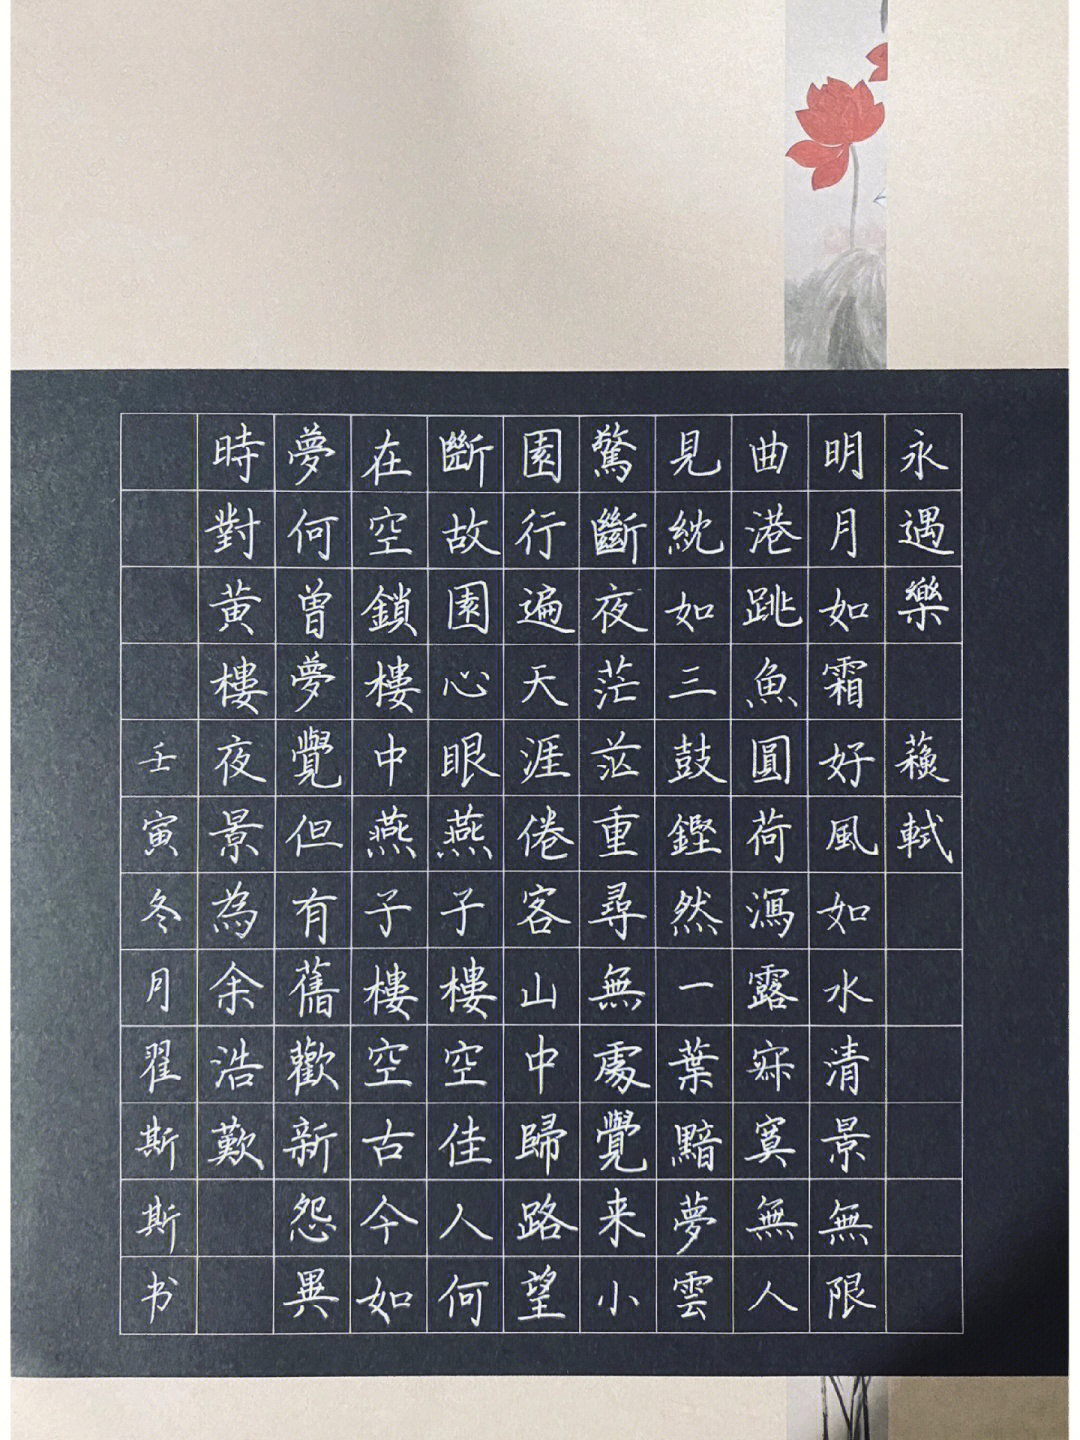 永遇樂 蘓軾
明月如霜好風如水清景無限
曲港跳魚圓荷瀉露寂寞無人
見紞如三鼓鏗然一葉黯夢雲
驚斷夜茫茫重尋無處覺来小
園行遍天涯倦客山中歸路望
斷故園心眼燕子樓空佳人何
在空鎖樓中燕子樓空古今如
夢何曾夢覺但有舊歡新怨異
時對黃樓夜景為余浩歎
壬寅冬月翟斯斯书